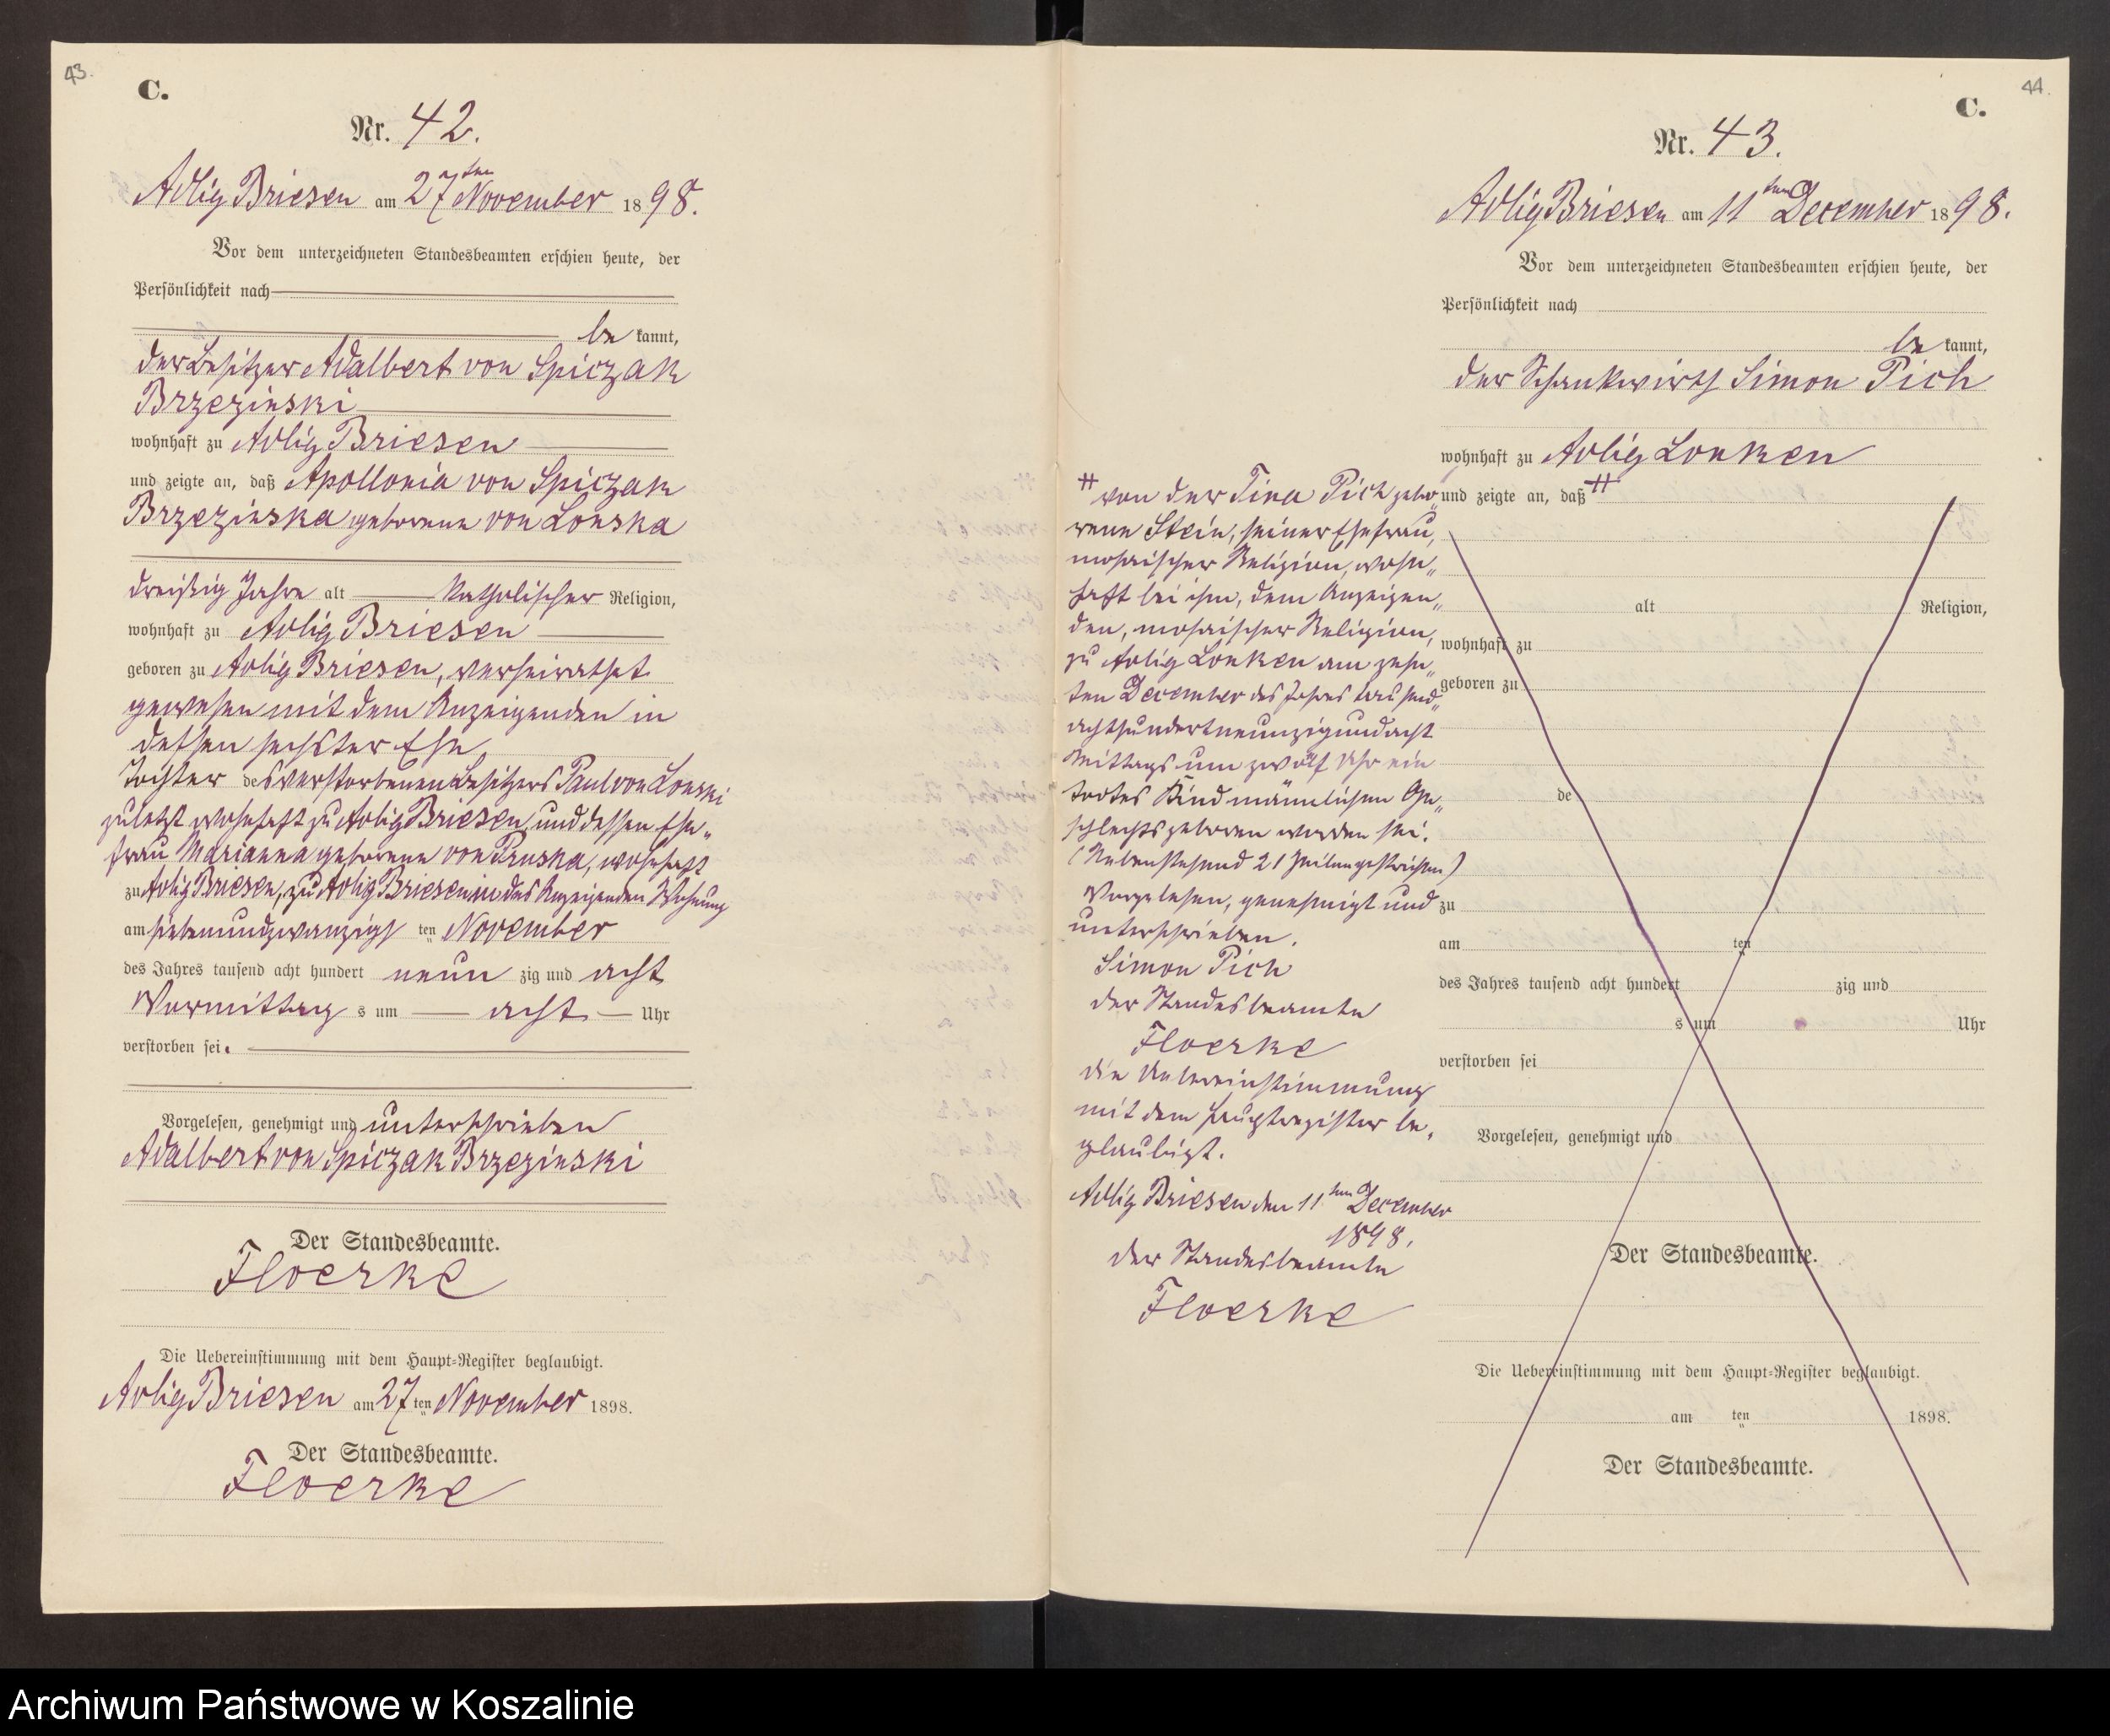 43.
C.
Nr. 42.
Adlig Briesen am 27ten November 1898.
Vor dem unterzeichneten Standesbeamten erschien heute, der
Persönlichkeit nach
be kannt,
der Besitzer Adalbert von Spiczak
Brzezinski
wohnhaft zu Adlig Briesen
und zeigte an, daß Apollonia von Spiczak
Brzezinska geborene von Lonska
dreißig Jahre alt katholischer Religion,
wohnhaft zu Adlig Briesen
geboren zu Adlig Briesen, verheirathet
gewesen mit dem Anzeigenden in
dessen sechster Ehe,
Tochter des verstorbenen Besitzers Paul von Lonski
zuletzt wohnhaft zu Adlig Briesen, und dessen Ehe„
frau Marianna geborene von Pruska, wohnhaft
zu Adlig Briesen, zu Adlig Briesen in des Anzeigenden Wohnung
am siebenundzwanzigs ten November
des Jahres tausend acht hundert neun zig und acht
Vormittag s um acht Uhr
verstorben sei.
Vorgelesen, genehmigt und unterschrieben
Adalbert von Spiczak Brzezinski
Der Standesbeamte.
Floerke
Die Uebereinstimmung mit dem Haupt-Register beglaubigt.
Adlig Briesen am 27 ten November 1898.
Der Standesbeamte.
Floerke
44.
C.
Nr. 43.
Adlig Briesen am 11ten December 1898.
Vor dem unterzeichneten Standesbeamten erschien heute, der
Persönlichkeit nach
be kannt,
der Schankwirth Simon Pich
wohnhaft zu Adlig Lonken
und zeigte an, daß #
# von der Tina Pich gebo„
rene Stein, seiner Ehefrau,
mosaischer Religion, wohn„
haft bei ihm, dem Anzeigen„
den, mosaischer Religion,
zu Adlig Lonken am zehn„
ten December des Jahres tausend„
achthundertneunzigundacht
Mittags um zwölf Uhr ein
todtes Kind männlichen Ge„
schlechts geboren worden sei.
(Nebenstehend 21 Zeilen gestrichen)
Vorgelesen, genehmigt und
unterschrieben.
Simon Pich
der Standesbeamte
Floerke
die Uebereinstimmung
mit dem Hauptregister be„
glaubigt.
Adlig Briesen den 11ten December
1898.
der Standesbeamte
Floerke
alt Religion,
wohnhaft zu
geboren zu
de
zu
am ten
des Jahres tausend acht hundert zig und
s um Uhr
verstorben sei
Vorgelesen, genehmigt und
Der Standesbeamte.
Die Uebereinstimmung mit dem Haupt-Register beglaubigt.
am ten 1898.
Der Standesbeamte.
Archiwum Państwowe w Koszalinie